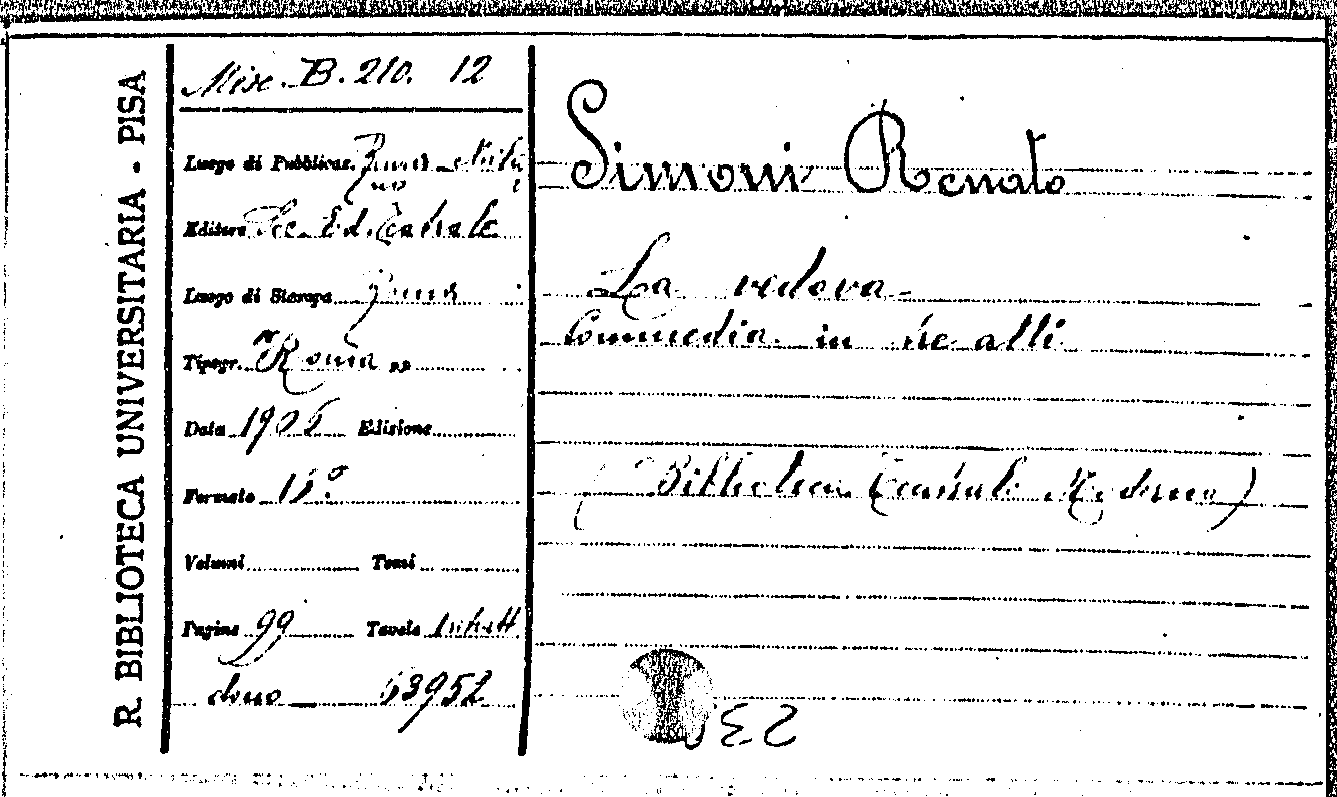 R. BIBLIOTECA UNIVERSITARIA - PISA
Misc. B. 210. 12
Luogo di Pubblicaz. Roma - Mila
no
Editore Soc. Ed. Teatrale
Luogo di Stampa Roma
Tipogr. "Roma"
Data 1906 Edizione
Formato 16°
Volumi Tomi
Pagine 99 Tavole 1 ritratt
dono 63952
Simoni Renato
La vedova
Commedia in tre atti
(Biblioteca Teatrale Moderna)